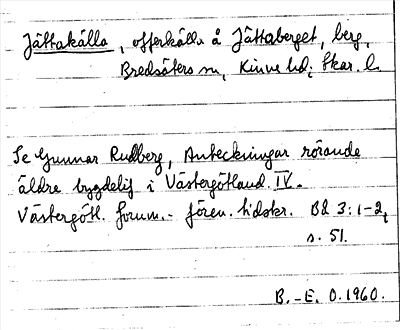 Jättakälla, offerkälla å Jättaberget, berg,
Bredsäters sn, Kinne hd; Skar. l.
Se Gunnar Rudberg, Anteckningar rörande
äldre bygdeliv i Västergötland. IV.
Västergötl. fornm.- fören. tidskr. Bd 3: 1-2,
s. 51.
B.-E. O. 1960.